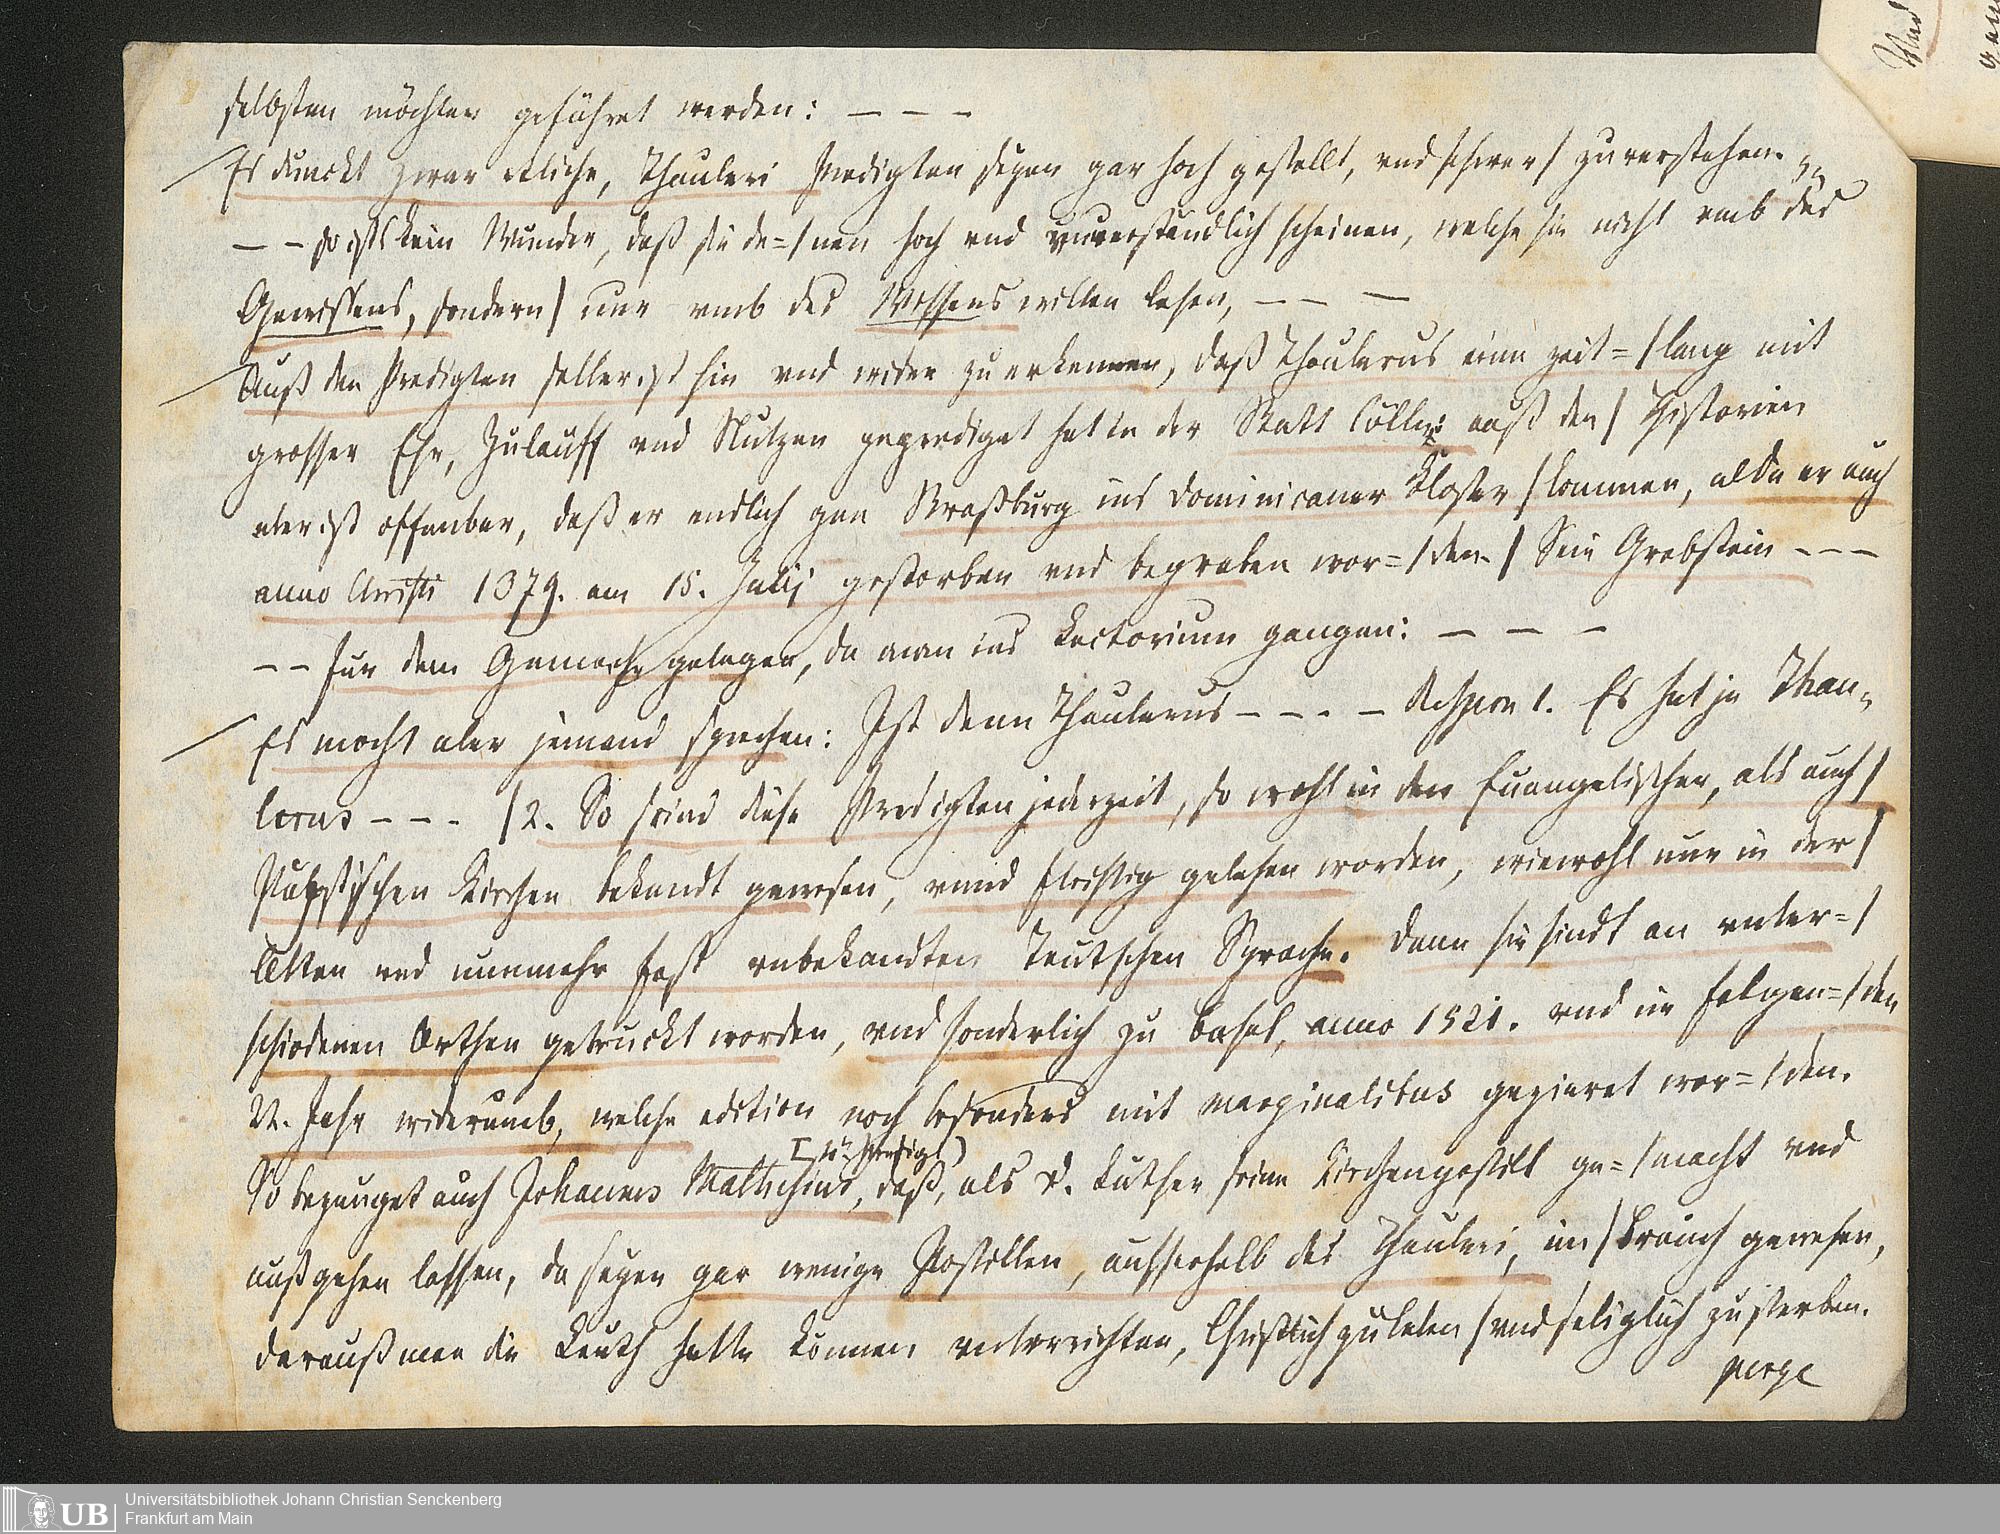 selbsten möchten geführet werden: — — —
Es dunckt zwar etliche, Thauleri Predigten seyen gar hoch gestellt, vnd schwer / zu verstehen.
— — so ists kein Wunder, daß sie de=/nen hoch vnd vnverständlich scheinen, welche sie nicht vmb des
Gewissens, sondern / nur vmb des Wissens willen lesen, — — —
Auß den Predigten selber ist hin vnd wider zu erkennen, daß Thaulerus eine zeit=/lang mit
grosser Ehr, Zulauff vnd Nutzen geprediget hat in der Statt Cölln: auß den / Historien
aber ist offenbar, daß er endlich gen Straßburg ins Dominicaner Kloster / kommen, alda er auch
anno Christi 1379. am 15. Julij gestorben vnd begraben wor=/den. / Sein Grabstein - - -
— — für dem Gemach gelegen, da man ins Lectorium gangen: — — —
Es mocht aber jemand sprechen: Ist denn Thaulerus — — . — Respon 1. Es hat je Thau-
lerus - - - / 2. So seind diese Predigten jederzeit, so wohl in den Euangelischen, als auch /
Päpstischen Kirchen bekandt gewesen, vnnd fleissig gelesen worden, wiewohl nur in der /
Alten vnd nunmehr fast vnbekandten Teutschen Sprache. Denn sie sindt an vnter=/
schiedenen Orthen getruckt worden, vnd sonderlich zu Basel, anno 1521. vnd im folgen=/den
22. Jahr widerumb, welche edition noch besonders mit marginalibus gezieret wor=/den.
[12. Predigt)
So bezeuget auch Johannes Mathesius, daß, als D. Luther seine Kirchenpostill ge=/macht vnd
außgehen lassen, da seyen gar wenige Postillen, ausserhalb des Thauleri, im / Brauch gewesen,
darauß man die Leuth hette können vnterrichten, Christlich zu leben / vnd seliglich zu sterben.
perge
Universitätsbibliothek Johann Christian Senckenberg
UB
Frankfurt am Main